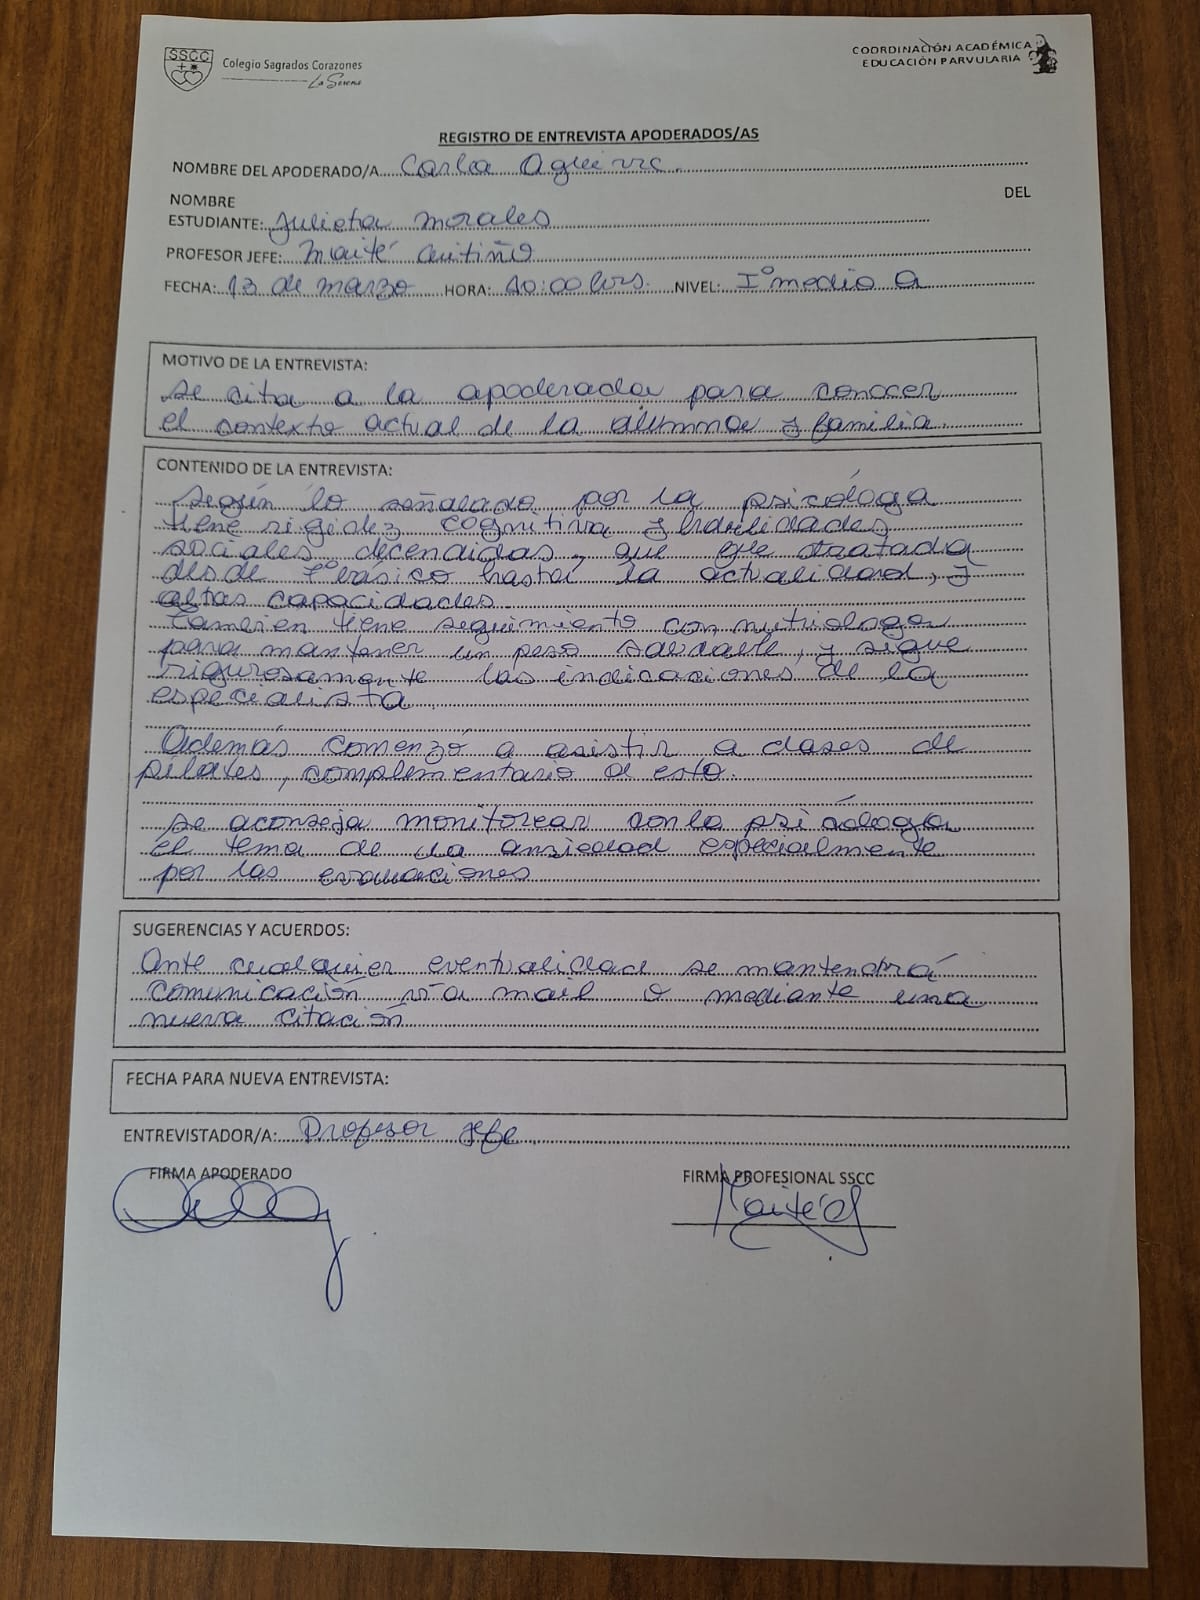 SSCC
Colegio Sagrados Corazones
La Serena
COORDINACIÓN ACADÉMICA
EDUCACIÓN PARVULARIA
REGISTRO DE ENTREVISTA APODERADOS/AS
NOMBRE DEL APODERADO/A Carla Aguirre.
NOMBRE DEL
ESTUDIANTE: Julieta Morales
PROFESOR JEFE: Maité
FECHA: 13 de marzo HORA: 10:00 hrs. NIVEL: I° medio A
MOTIVO DE LA ENTREVISTA:
Se cita a la apoderada para conocer
el contexto actual de la alumna y familia.
CONTENIDO DE LA ENTREVISTA:
Según lo señalado por la psicóloga
tiene rigidez cognitiva y habilidades
sociales decendidas, que fue tratada
desde 7°básico hasta la actualidad, y
altas capacidades.
También tiene seguimiento con nutrióloga
para mantener un peso saludable, y sigue
rigurosamente las indicaciones de la
especialista.
Además comenzó a asistir a clases de
pilates, complementario a esto.
Se aconseja monitorear con la psicóloga
el tema de la ansiedad especialmente
por las evaluaciones
SUGERENCIAS Y ACUERDOS:
Ante cualquier eventualidad se mantendrá
comunicación vía mail o mediante una
nueva citación
FECHA PARA NUEVA ENTREVISTA:
ENTREVISTADOR/A: Profesor jefe
FIRMA APODERADO FIRMA PROFESIONAL SSCC
Maité